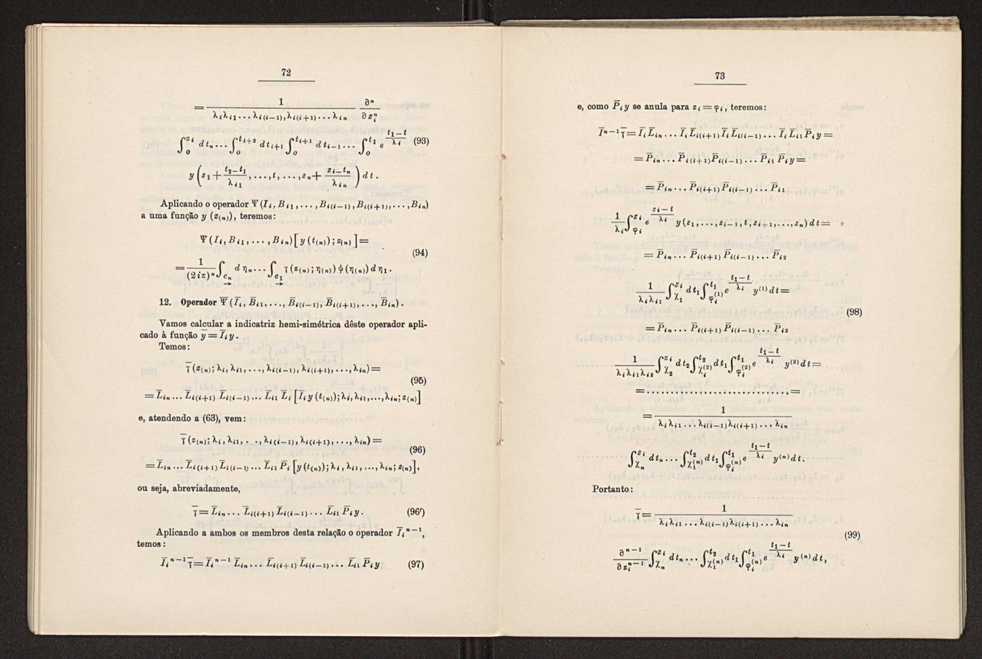 72
= 1 / (λ_i λ_{i1} ... λ_{i(i−1)}, λ_{i(i+1)} ... λ_{in}) ∂^n / ∂z_i^n
∫_0^{z_i} dt_n ... ∫_0^{t_{i+2}} dt_{i+1} ∫_0^{t_{i+1}} dt_{i−1} ... ∫_0^{t_1} e^{(t_1−t)/λ_i} (93)
y ( z_1 + (t_2−t_1)/λ_{i1}, ..., t, ..., z_n + (z_i−t_n)/λ_{in} ) dt.
Aplicando o operador Ψ (I_i, B_{i1}, ..., B_{i(i−1)}, B_{i(i+1)}, ..., B_{in})
a uma função y (z_{(n)}), teremos:
Ψ (I_i, B_{i1}, ..., B_{in}) [ y (t_{(n)}); z_{(n)} ] =
(94)
= 1/(2iπ)^n ∫_{c_n} dη_n ... ∫_{c_1} ῐ (z_{(n)}; η_{(n)}) ψ (η_{(n)}) dη_1.
12. Operador Ψ̅ (I̅_i, B̅_{i1}, ..., B̅_{i(i−1)}, B̅_{i(i+1)}, ..., B̅_{in}).
Vamos calcular a indicatriz hemi-simétrica dêste operador apli-
cado à função y̅ = I̅_i y.
Temos:
ῑ (z_{(n)}; λ_i, λ_{i1}, ..., λ_{i(i−1)}, λ_{i(i+1)}, ..., λ_{in}) =
(95)
= L̅_{in} ... L̅_{i(i+1)} L̅_{i(i−1)} ... L̅_{i1} L̅_i [ I̅_i y (t_{(n)}); λ_i, λ_{i1}, ..., λ_{in}; z_{(n)} ]
e, atendendo a (63), vem:
ῑ (z_{(n)}; λ_i, λ_{i1}, . ., λ_{i(i−1)}, λ_{i(i+1)}, ..., λ_{in}) =
(96)
= L̅_{in} ... L̅_{i(i+1)} L̅_{i(i−1)} ... L̅_{i1} P̅_i [ y (t_{(n)}); λ_i, λ_{i1}, ..., λ_{in}; z_{(n)} ],
ou seja, abreviadamente,
ῑ = L̅_{in} ... L̅_{i(i+1)} L̅_{i(i−1)} ... L̅_{i1} P̅_i y. (96')
Aplicando a ambos os membros desta relação o operador I̅_i^{n−1},
temos:
I̅_i^{n−1} ῑ = I̅_i^{n−1} L̅_{in} ... L̅_{i(i+1)} L̅_{i(i−1)} ... L̅_{i1} P̅_i y (97)
73
e, como P̅_i y se anula para z_i = φ_i, teremos:
I̅^{n−1} ῑ = I̅_i L̅_{in} ... I̅_i L̅_{i(i+1)} I̅_i L̅_{i(i−1)} ... I̅_i L̅_{i1} P̅_i y =
= P̅_{in} ... P̅_{i(i+1)} P̅_{i(i−1)} ... P̅_{i1} P̅_i y =
= P̅_{in} ... P̅_{i(i+1)} P̅_{i(i−1)} ... P̅_{i1}
1/λ_i ∫_{φ_i}^{z_i} e^{(z_i−t)/λ_i} y (z_1, ..., z_{i−1}, t, z_{i+1}, ..., z_n) dt =
= P̅_{in} ... P̅_{i(i+1)} P̅_{i(i−1)} ... P̅_{i2}
1/(λ_i λ_{i1}) ∫_{χ_1}^{z_i} dt_1 ∫_{φ_i^{(1)}}^{t_1} e^{(t_1−t)/λ_i} y^{(1)} dt =
(98)
= P̅_{in} ... P̅_{i(i+1)} P̅_{i(i−1)} ... P̅_{i3}
1/(λ_i λ_{i1} λ_{i2}) ∫_{χ_2}^{z_i} dt_2 ∫_{χ_1^{(2)}}^{t_2} dt_1 ∫_{φ_i^{(2)}}^{t_1} e^{(t_1−t)/λ_i} y^{(2)} dt =
= ............................ =
= 1 / (λ_i λ_{i1} ... λ_{i(i−1)} λ_{i(i+1)} ... λ_{in})
∫_{χ_n}^{z_i} dt_n ... ∫_{χ_1^{(n)}}^{t_2} dt_1 ∫_{φ_i^{(n)}}^{t_1} e^{(t_1−t)/λ_i} y^{(n)} dt.
Portanto:
ῑ = 1 / (λ_i λ_{i1} ... λ_{i(i−1)} λ_{i(i+1)} ... λ_{in})
(99)
∂^{n−1}/∂z_i^{n−1} ∫_{χ_n}^{z_i} dt_n ... ∫_{χ_1^{(n)}}^{t_2} dt_1 ∫_{φ_i^{(n)}}^{t_1} e^{(t_1−t)/λ_i} y^{(n)} dt,